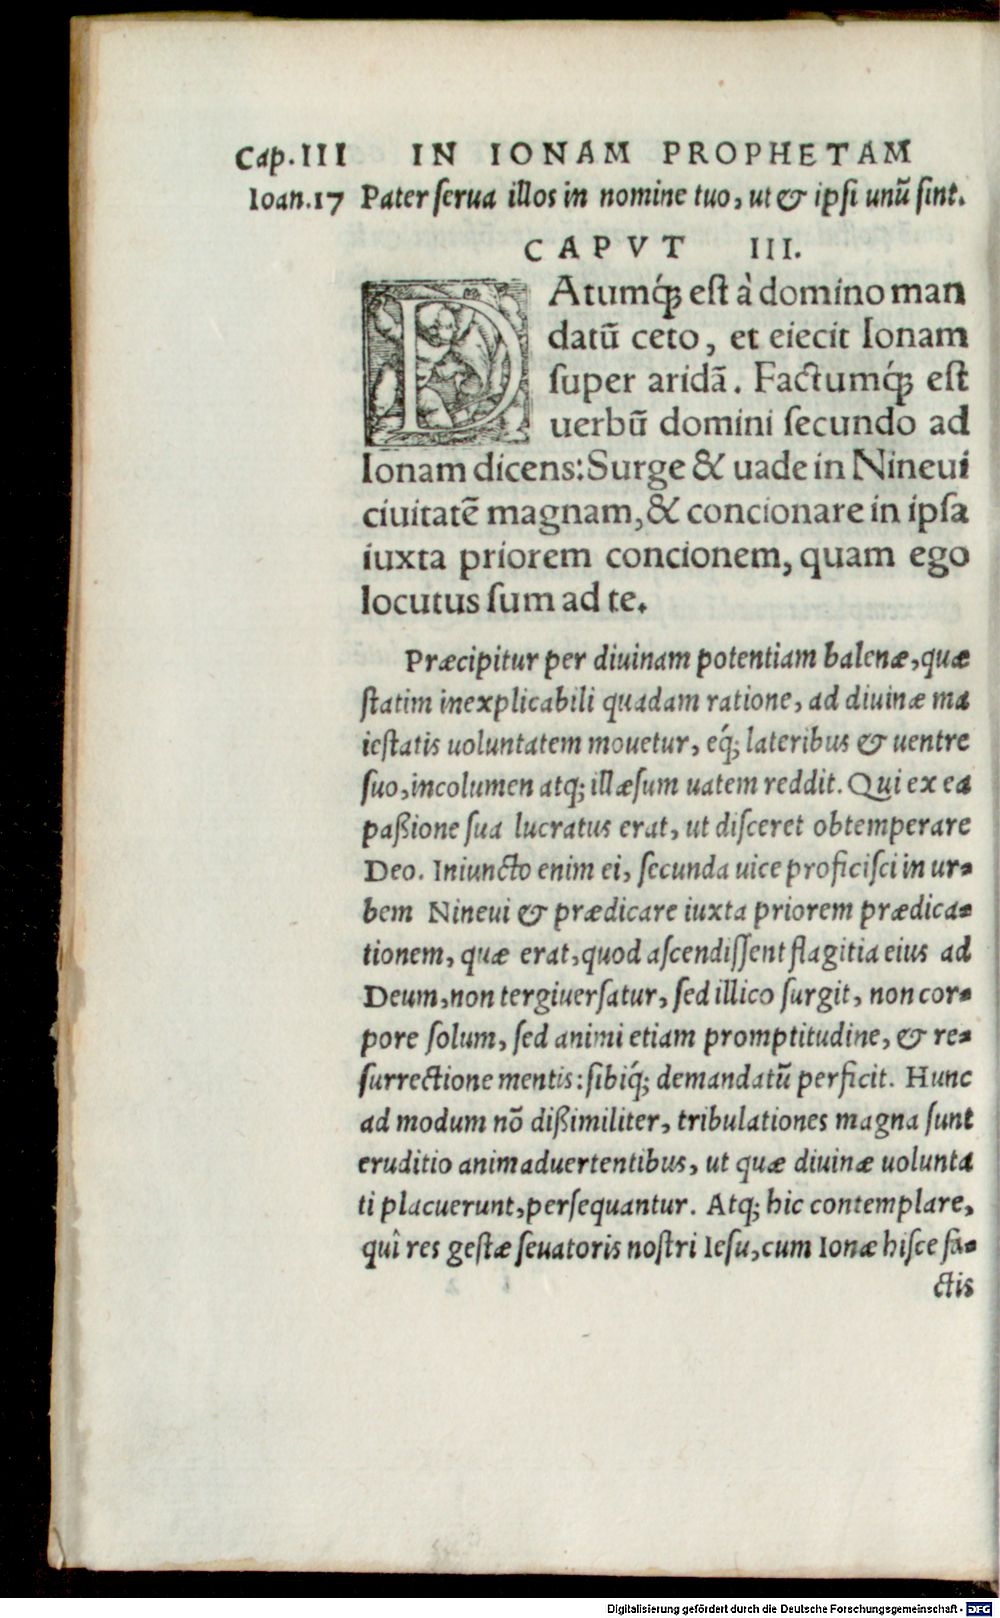 Cap.III IN IONAM PROPHETAM
Ioan.17 Pater ſerua illos in nomine tuo, ut & ipſi unũ ſint.
CAPVT III.
DAtumq́ꝫ eſt à domino man
datũ ceto, et eiecit Ionam
ſuper aridã. Factumq́ꝫ eſt
uerbũ domini ſecundo ad
Ionam dicens: Surge & uade in Nineui
ciuitatẽ magnam, & concionare in ipſa
iuxta priorem concionem, quam ego
locutus ſum ad te.
Præcipitur per diuinam potentiam balenæ, quæ
ſtatim inexplicabili quadam ratione, ad diuinæ ma
ieſtatis uoluntatem mouetur, eq́; lateribus & uentre
ſuo, incolumen atq; illæſum uatem reddit. Qui ex ea
paßione ſua lucratus erat, ut diſceret obtemperare
Deo. Iniuncto enim ei, ſecunda uice proficiſci in ur-
bem Nineui & prædicare iuxta priorem prædica-
tionem, quæ erat, quod aſcendiſſent flagitia eius ad
Deum, non tergiuerſatur, ſed illico ſurgit, non cor-
pore ſolum, ſed animi etiam promptitudine, & re-
ſurrectione mentis: ſibiq́; demandatũ perficit. Hunc
ad modum nõ dißimiliter, tribulationes magna ſunt
eruditio animaduertentibus, ut quæ diuinæ uolunta
ti placuerunt, perſequantur. Atq; hic contemplare,
quî res geſtæ ſeuatoris noſtri Ieſu, cum Ionæ hiſce fa-
ctis
Digitalisierung gefördert durch die Deutsche Forschungsgemeinschaft - DFG